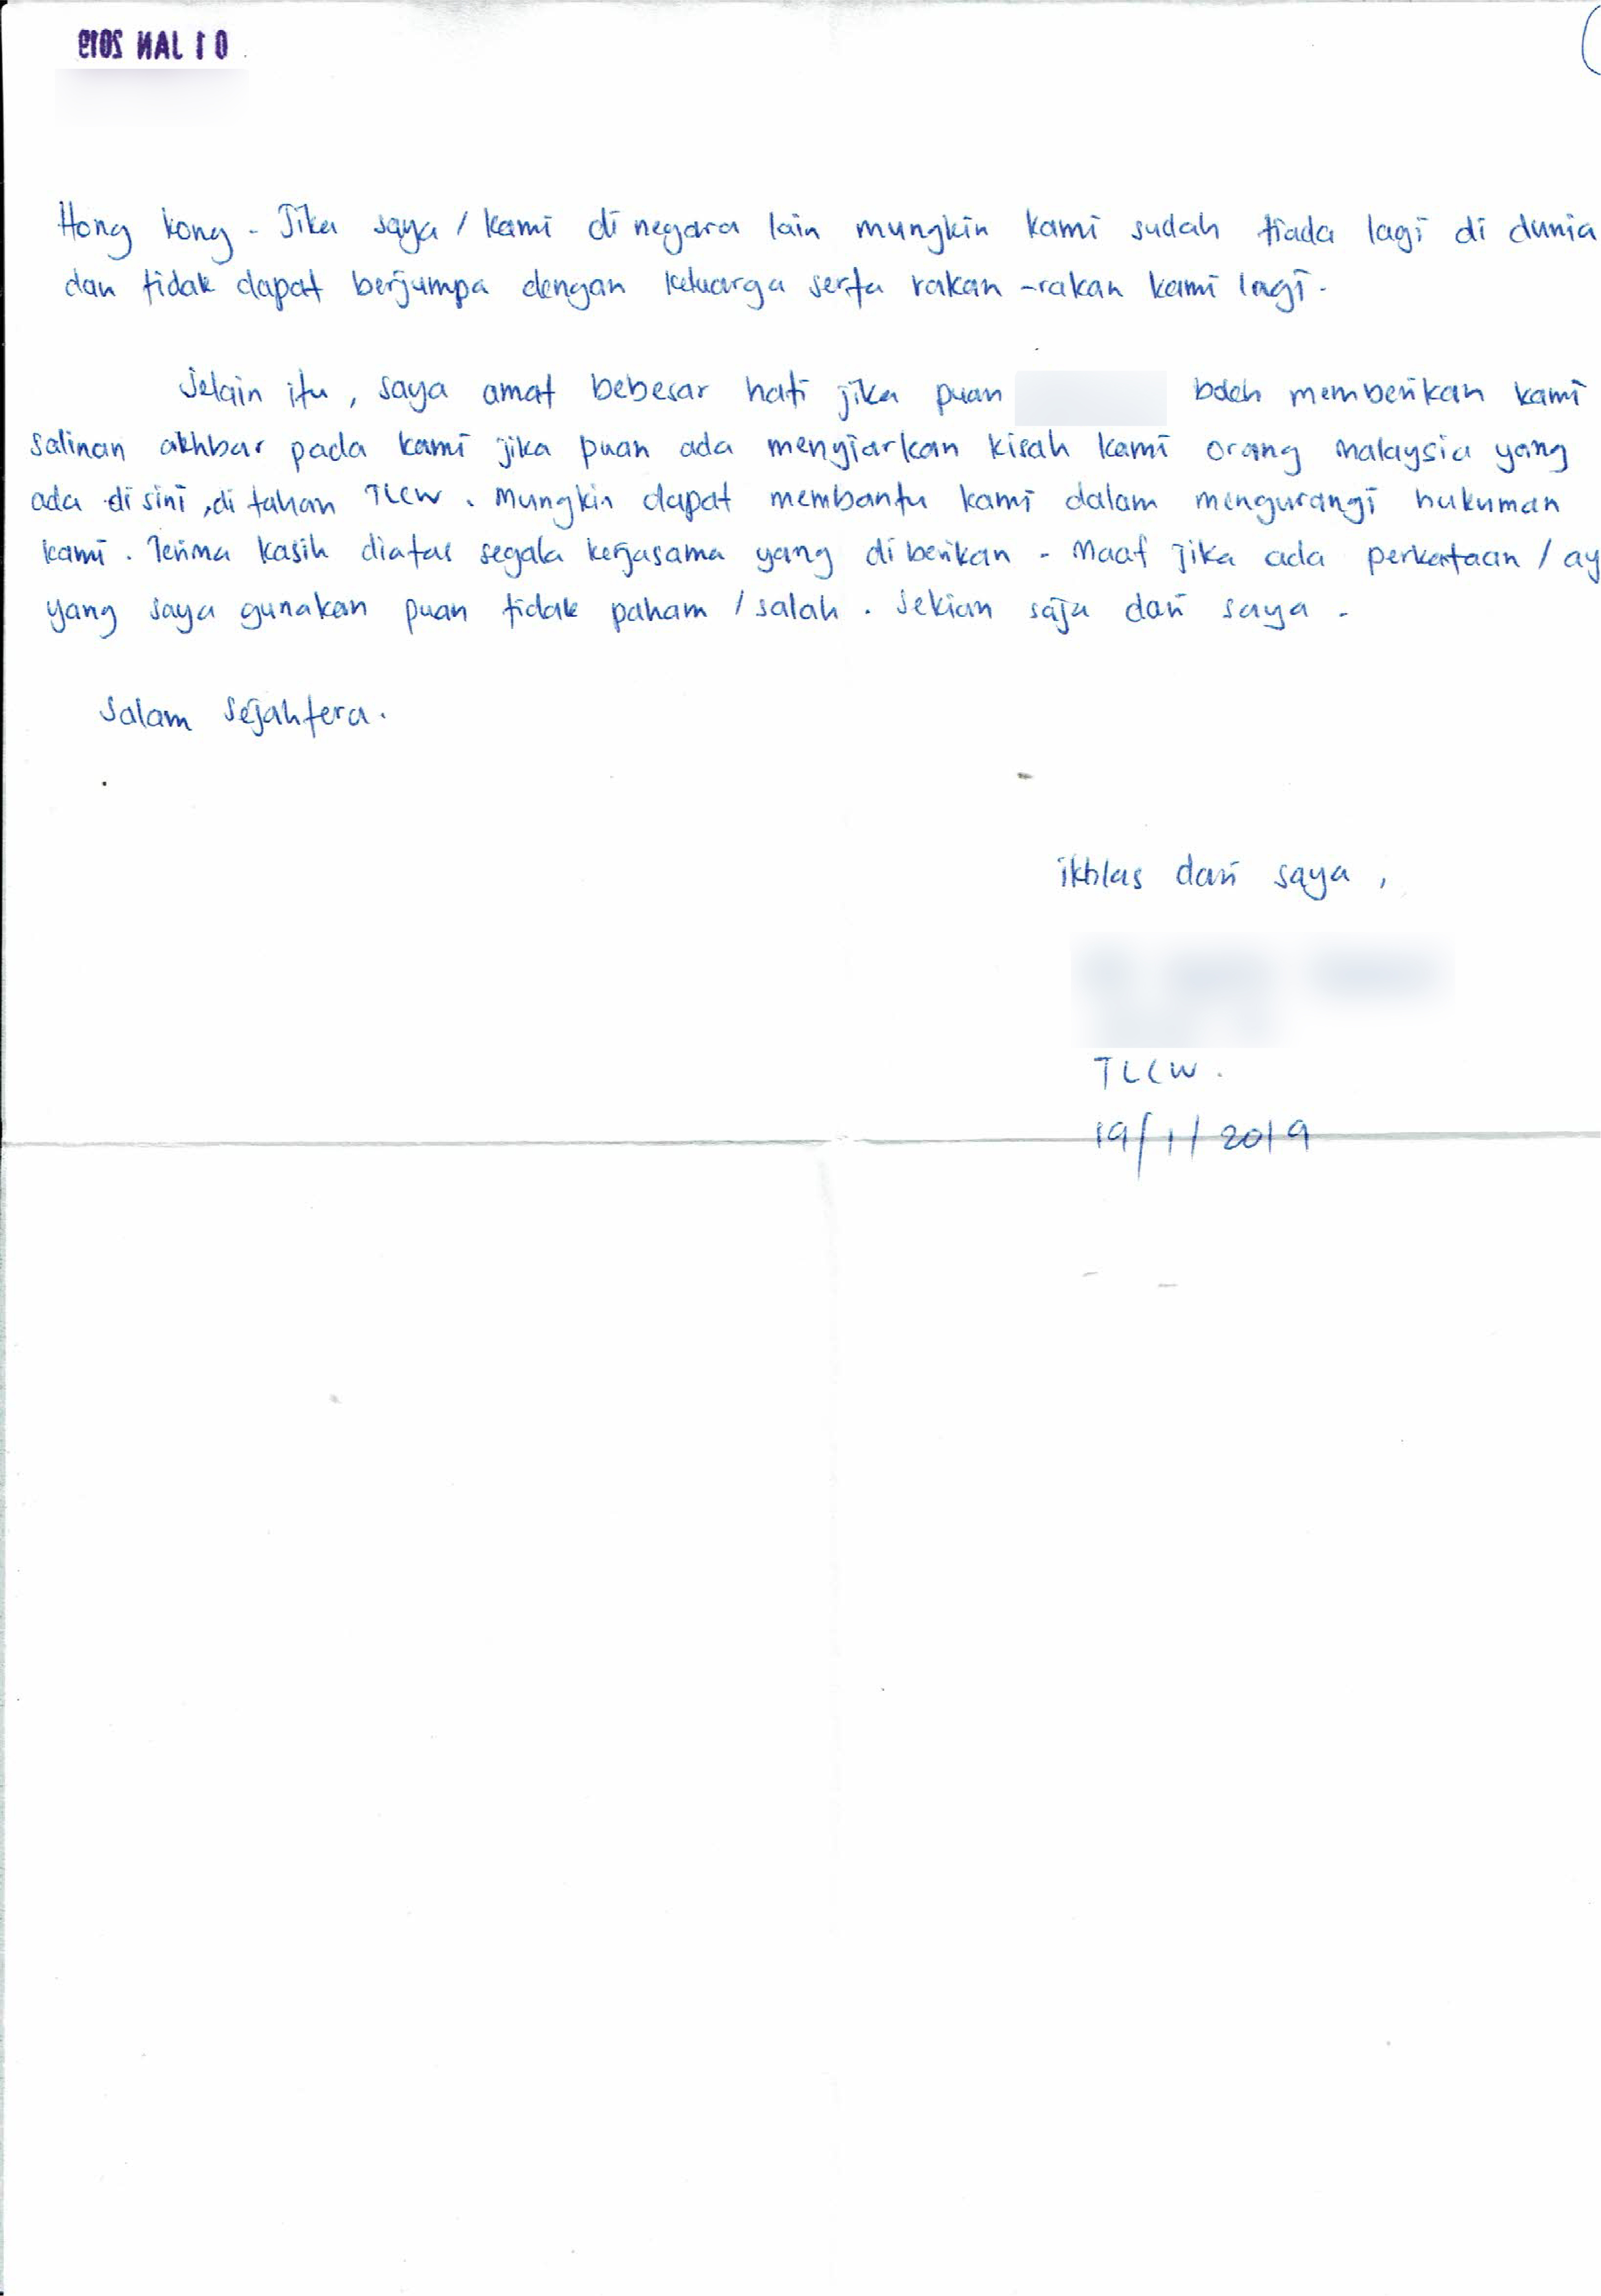 01 JAN 2019
Hong Kong. Jika saya / kami di negara lain mungkin kami sudah tiada lagi di dunia
dan tidak dapat berjumpa dengan keluarga serta rakan-rakan kami lagi.
Selain itu, saya amat bebesar hati jika puan boleh memberikan kami
salinan akhbar pada kami jika puan ada menyiarkan kisah kami orang Malaysia yang
ada di sini, di tahan TLCW. Mungkin dapat membantu kami dalam mengurangi hukuman
kami. Terima kasih diatas segala kerjasama yang di berikan. Maaf jika ada perkataan / ay
yang saya gunakan puan tidak paham / salah. Sekian saja dari saya.
Salam Sejahtera.
ikhlas dari saya,
TLCW.
19/1/2019